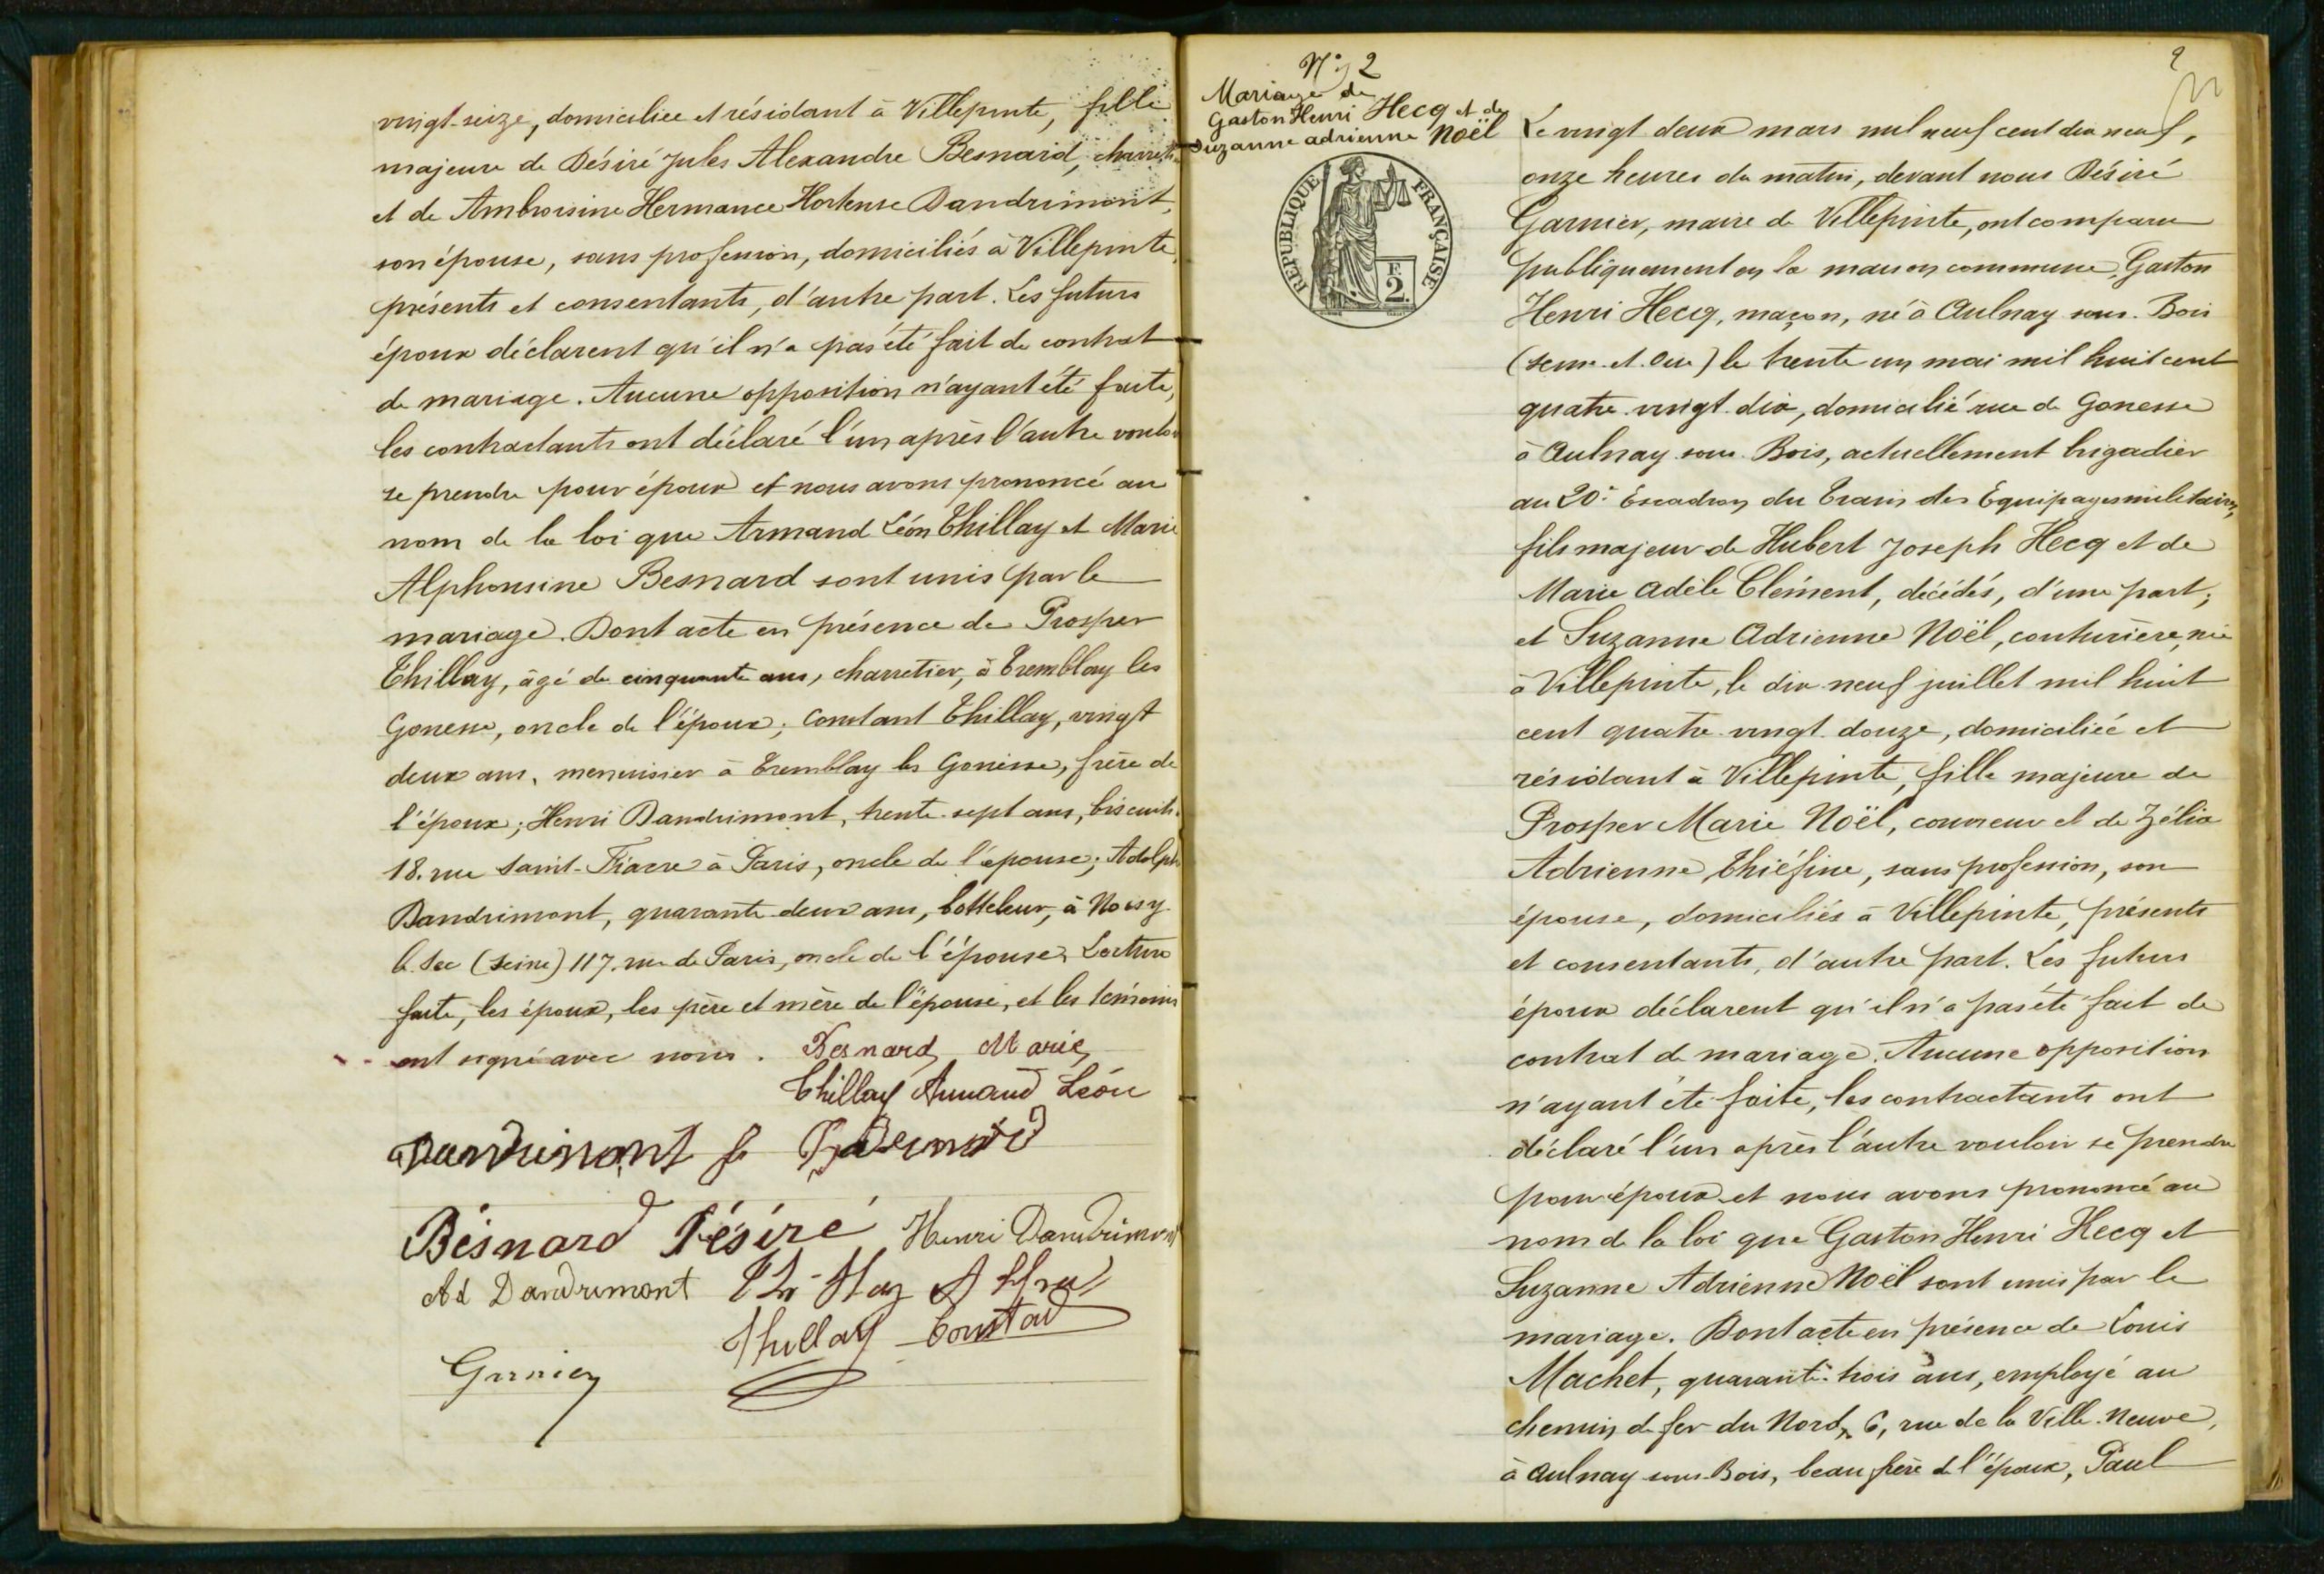 vingt-seize, domiciliée et résidant à Villepinte, fille
majeure de Désiré Jules Alexandre Besnard,
et de Ambroisine Hermance Hortense Dandrimont,
son épouse, sans profession, domiciliés à Villepinte,
présents et consentants, d'autre part. Les futurs
époux déclarent qu'il n'a pas été fait de contrat
de mariage. Aucune opposition n'ayant été faite,
les contractants ont déclaré l'un après l'autre vouloir
se prendre pour époux et nous avons prononcé au
nom de la loi que Armand Léon Thillay et Marie
Alphonsine Besnard sont unis par le
mariage. Dont acte en présence de Prosper
Thillay, âgé de cinquante ans, charretier, à Tremblay les
Gonesse, oncle de l'époux; Constant Thillay, vingt
deux ans, menuisier à Tremblay les Gonesse, frère de
l'époux; Henri Dandrimont, trente-sept ans,
18. rue Saint-Fiacre à Paris, oncle de l'épouse; Adolphe
Dandrimont, quarante deux ans, botteleur, à Noisy
le Sec (Seine) 117. rue de Paris, oncle de l'épouse. Lecture
faite, les époux, les père et mère de l'épouse, et les témoins
ont signé avec nous. Besnard Marie
Thillay Armand Léon
Dandrimont
Besnard Désiré Henri Dandrimont
Ad Dandrimont
Thillay Constant
Garnier
N° 2
Mariage de
Gaston Henri Hecq et de
Suzanne Adrienne Noël
RÉPUBLIQUE FRANÇAISE
F.
2.
2
Le vingt deux mars mil neuf cent dix neuf,
onze heures du matin, devant nous Désiré
Garnier, maire de Villepinte, ont comparu
publiquement en la maison commune, Gaston
Henri Hecq, maçon, né à Aulnay sous-Bois
(Seine-et-Oise) le trente un mai mil huit cent
quatre-vingt-dix, domicilié rue de Gonesse
à Aulnay sous-Bois, actuellement brigadier
au 20e Escadron du Train des Equipages militaires,
fils majeur de Hubert Joseph Hecq et de
Marie Adèle Clément, décédés, d'une part;
et Suzanne Adrienne Noël, couturière, née
à Villepinte, le dix-neuf juillet mil huit
cent quatre-vingt-douze, domiciliée et
résidant à Villepinte, fille majeure de
Prosper Marie Noël, couvreur et de Zélia
Adrienne Thiéfine, sans profession, son
épouse, domiciliés à Villepinte, présents
et consentants, d'autre part. Les futurs
époux déclarent qu'il n'a pas été fait de
contrat de mariage. Aucune opposition
n'ayant été faite, les contractants ont
déclaré l'un après l'autre vouloir se prendre
pour époux et nous avons prononcé au
nom de la loi que Gaston Henri Hecq et
Suzanne Adrienne Noël sont unis par le
mariage. Dont acte en présence de Louis
Machet, quarante-trois ans, employé au
chemin de fer du Nord, 6, rue de la Ville-Neuve,
à Aulnay sous-Bois, beau frère de l'époux, Paul